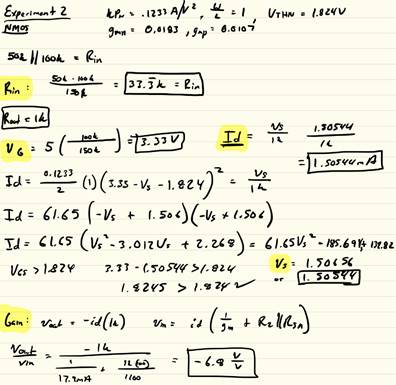 Experiment 2
NMOS
kPn = .1233 A/V², W/L = 1, VTHN = 1.824V
gmn = 0.0183, gmp = 0.0107
50k || 100k = Rin
Rin: 50k · 100k / 150k = 33.3k = Rin
Rout = 1k
VG = 5 (100k / 150k) = 3.33V
Id = Vs / 1k 1.50544 / 1k
= 1.50544mA
Id = 0.1233 / 2 (1) (3.33 - Vs - 1.824)² = Vs / 1k
Id = 61.65 (-Vs + 1.506)(-Vs + 1.506)
Id = 61.65 (Vs² - 3.012Vs + 2.268) = 61.65Vs² - 185.69Vs + 139.82
VGS > 1.824 3.33 - 1.50544 > 1.824
1.8245 > 1.824 ✓
Vs = 1.50656
or 1.50544
Gain: vout = -id(1k) vin = id (1/gm + R2||R3A)
vout / vin = -1k / = -6.8 V/V